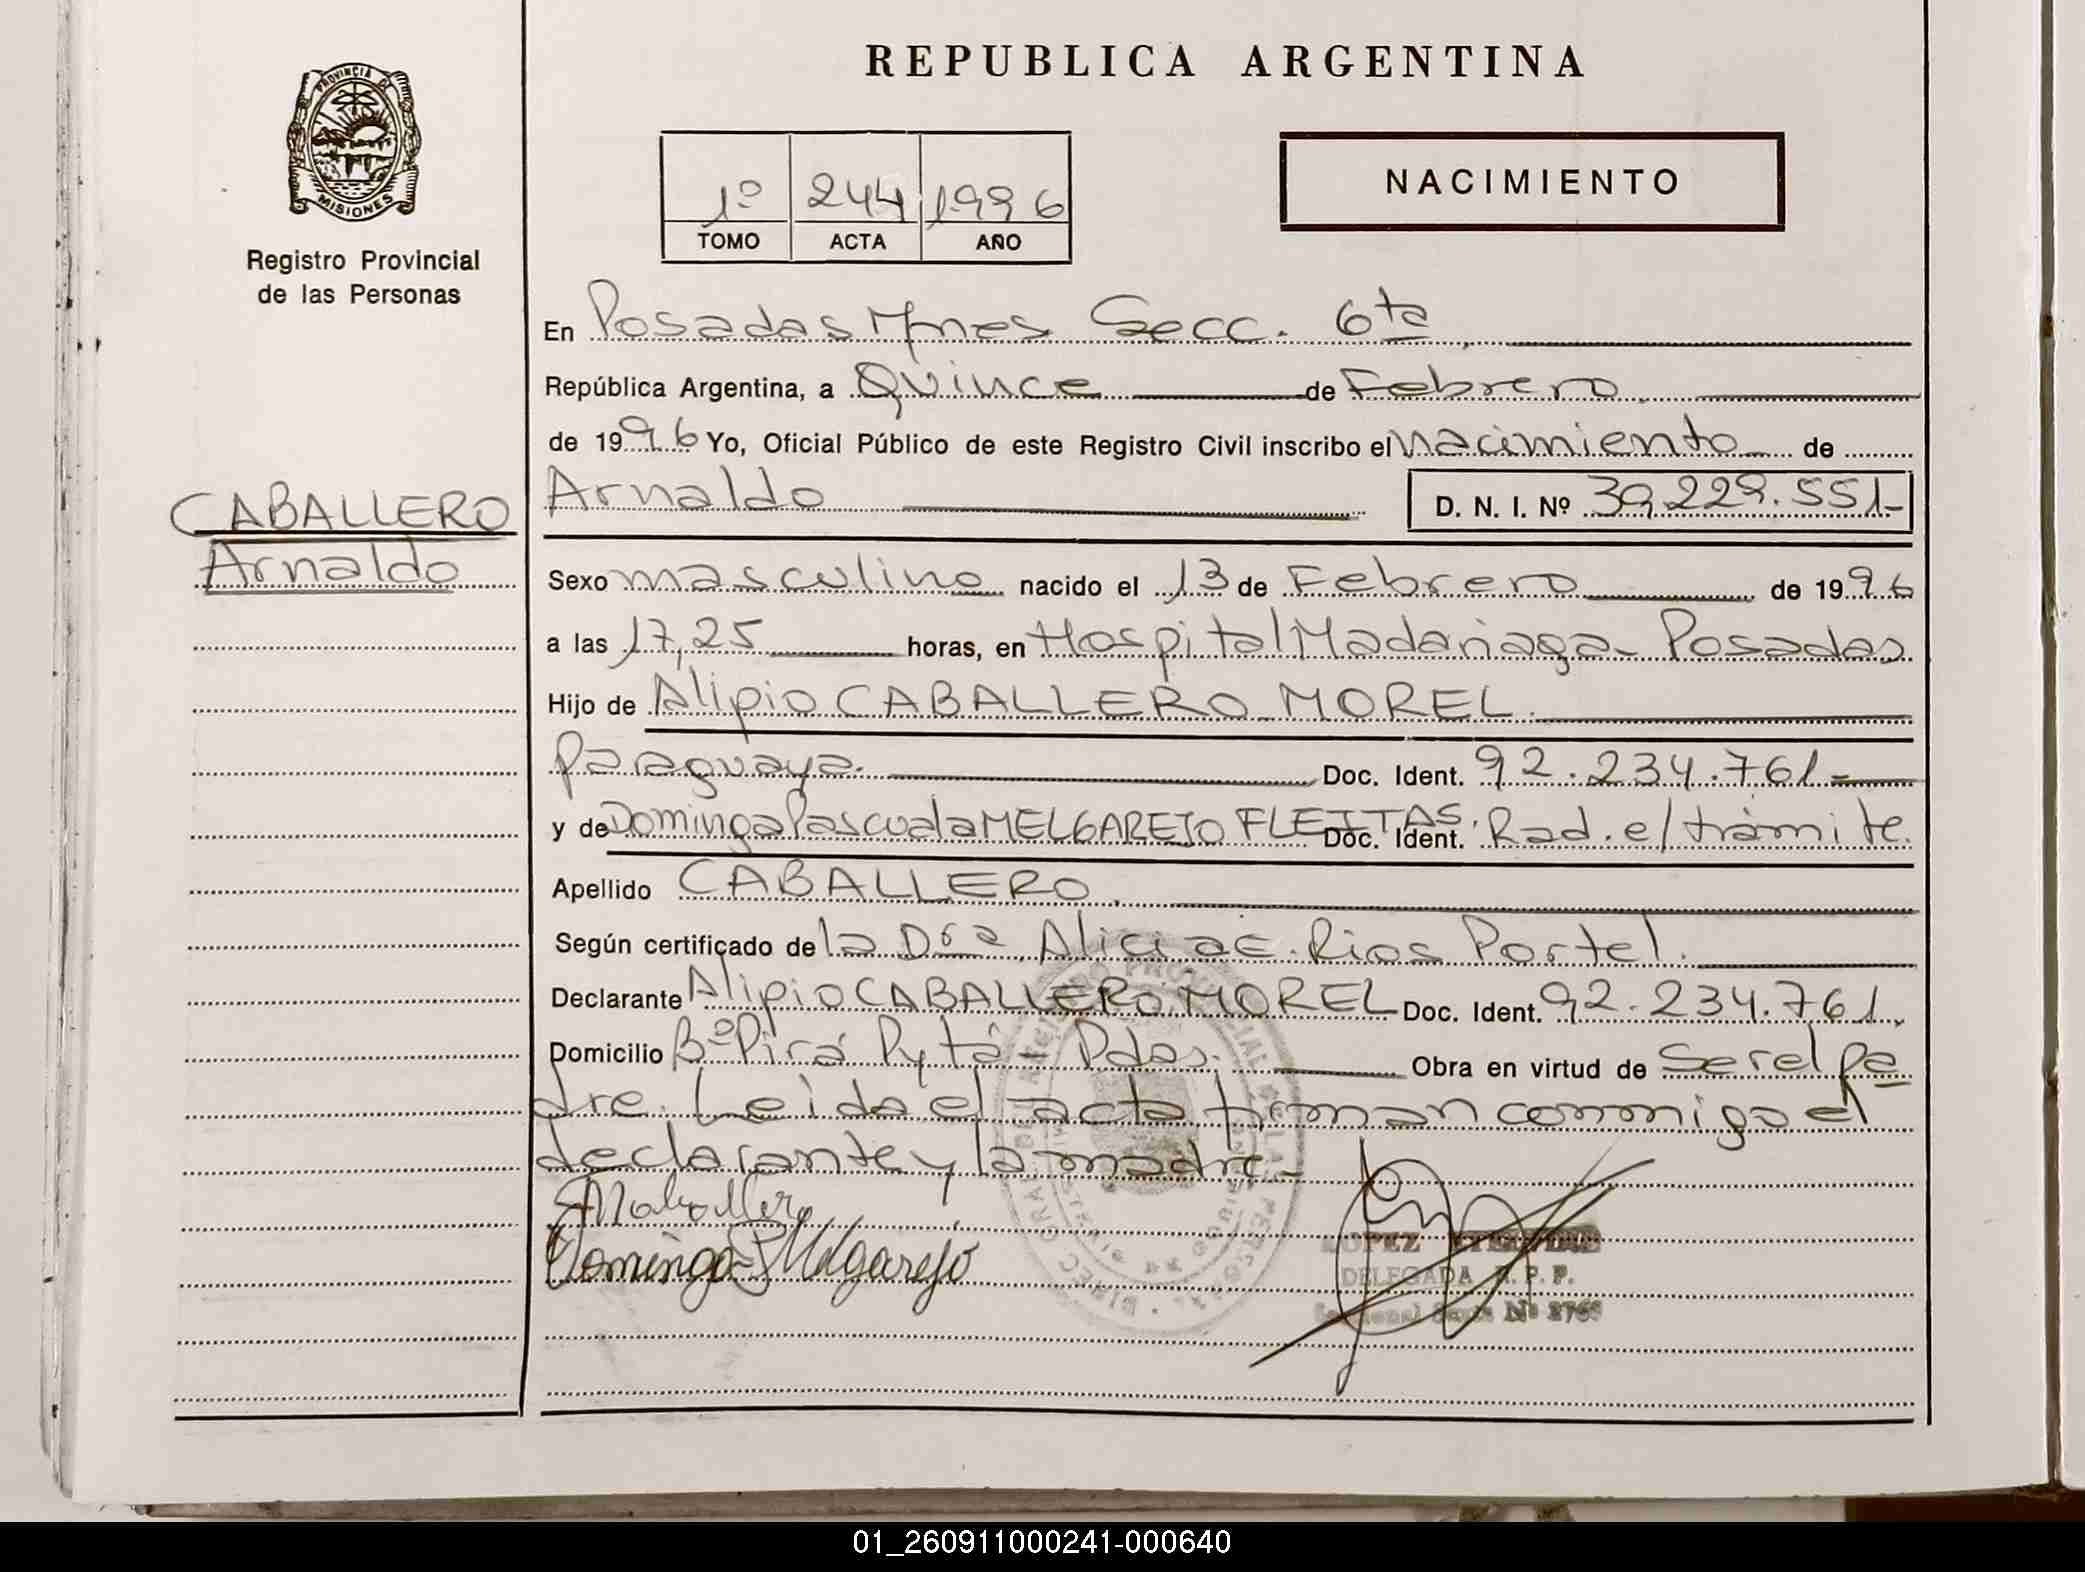 REPUBLICA ARGENTINA
PROVINCIA DE
MISIONES
Registro Provincial
de las Personas
1º 244 1996
TOMO ACTA AÑO
NACIMIENTO
En Posadas Mnes Secc. 6ta
República Argentina, a Quince de Febrero
de 1996 Yo, Oficial Público de este Registro Civil inscribo el Nacimiento de
CABALLERO
Arnaldo
Arnaldo D. N. I. Nº 39.229.551-
Sexo masculino nacido el 13 de Febrero de 1996
a las 17,25 horas, en Hospital Madariaga - Posadas
Hijo de Alipio CABALLERO MOREL
Paraguaya. Doc. Ident. 92.234.761-
y de Dominga Pascuala MELGAREJO FLEITAS. Doc. Ident. Rad. e/ trámite.
Apellido CABALLERO
Según certificado de la Dra Alicia E. Rios Portel.
Declarante Alipio CABALLERO MOREL Doc. Ident. 92.234.761.
Domicilio Bº Pirá Pytá - Pdas. Obra en virtud de Ser el pa
dre. Leida el acta firman conmigo el
declarante y la madre-
Dominga P Melgarejo
LOPEZ
DELEGADA R. P. P.
Nº 2768
01_260911000241-000640